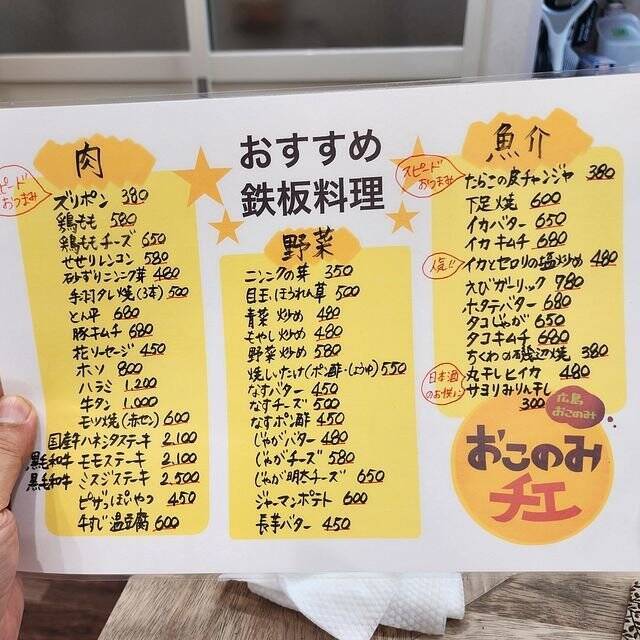 おすすめ
鉄板料理
肉
スピード
おつまみ
ズリポン 380
鶏もも 580
鶏ももチーズ 650
せせりレンコン 580
砂ずりニンニク芽 480
手羽タレ焼(3本) 500
とん平 680
豚キムチ 680
花ソーセージ 450
ホソ 800
ハラミ 1.200
牛タン 1.000
モツ焼(赤セン) 600
国産牛ハネシタステーキ 2,100
黒毛和牛 モモステーキ 2,100
黒毛和牛 ミスジステーキ 2,500
ピザっぽいやつ 450
牛すじ温豆腐 600
野菜
ニンニクの芽 350
目玉ほうれん草 500
青菜炒め 480
もやし炒め 480
野菜炒め 580
焼しいたけ(ポン酢・しょうゆ) 550
なすバター 450
なすチーズ 500
なすポン酢 450
じゃがバター 480
じゃがチーズ 580
じゃが明太チーズ 650
ジャーマンポテト 600
長芋バター 450
魚介
スピード
おつまみ
たらこの皮チャンジャ 380
下足焼 600
イカバター 650
イカキムチ 680
イカとセロリの塩炒め 480
えびガーリック 780
ホタテバター 680
タコじゃが 650
タコキムチ 680
ちくわの磯辺焼 380
日本酒
のお供に
丸干しヒイカ 480
サヨリみりん干し
300
広島
おこのみ
おこのみ
チエ